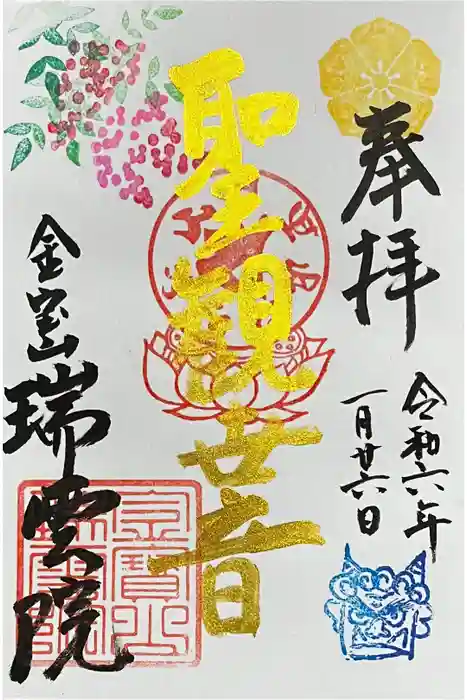 奉拝
令和六年
一月廿六日
聖観世音
金宝山瑞雲院